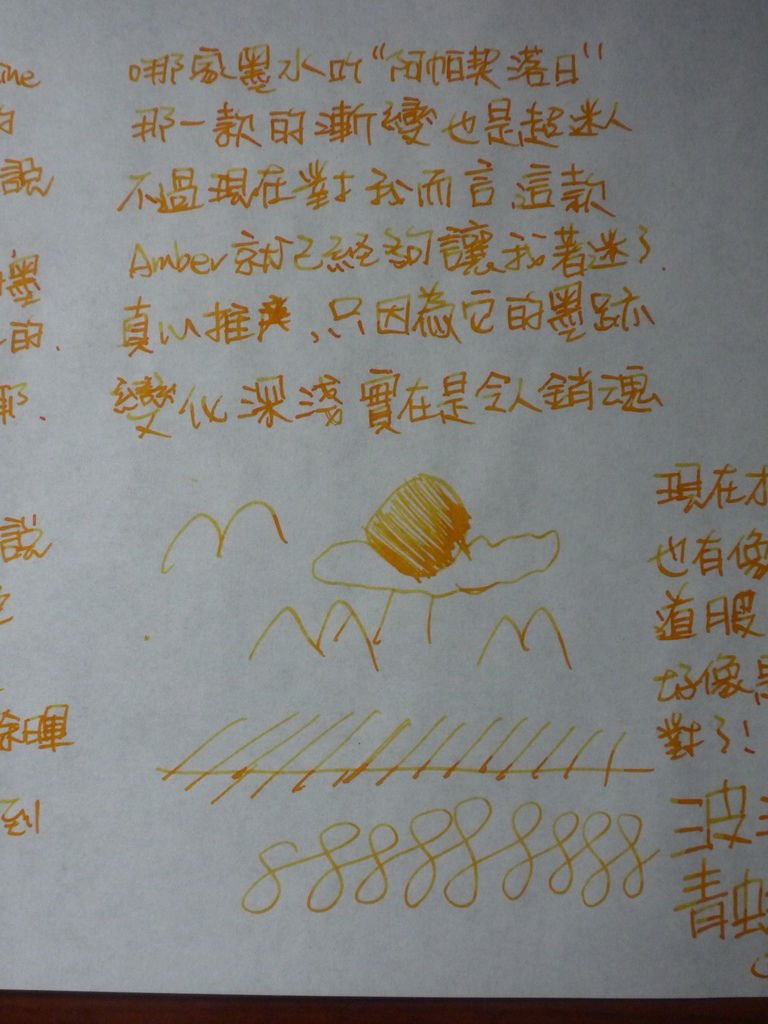 哪家墨水的“阿帕契落日”
那一款的漸變也是超迷人
不過現在對我而言,這款
Amber就已經夠讓我著迷了.
真心推爽,只因為它的墨跡
變化深淺實在是令人銷魂
說
墨
的.
耶.
說
餘暉
到
現在才
也有像
道服
好像是
對了!
波
青蛙